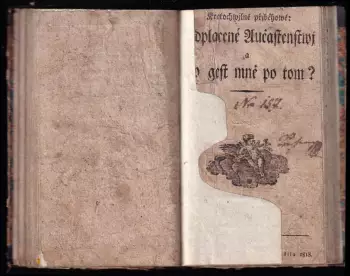 Kratochwjlné přjběhowé:
dplacené Aučastenstwj
a
gest mně po tom?
No 157.
1818.